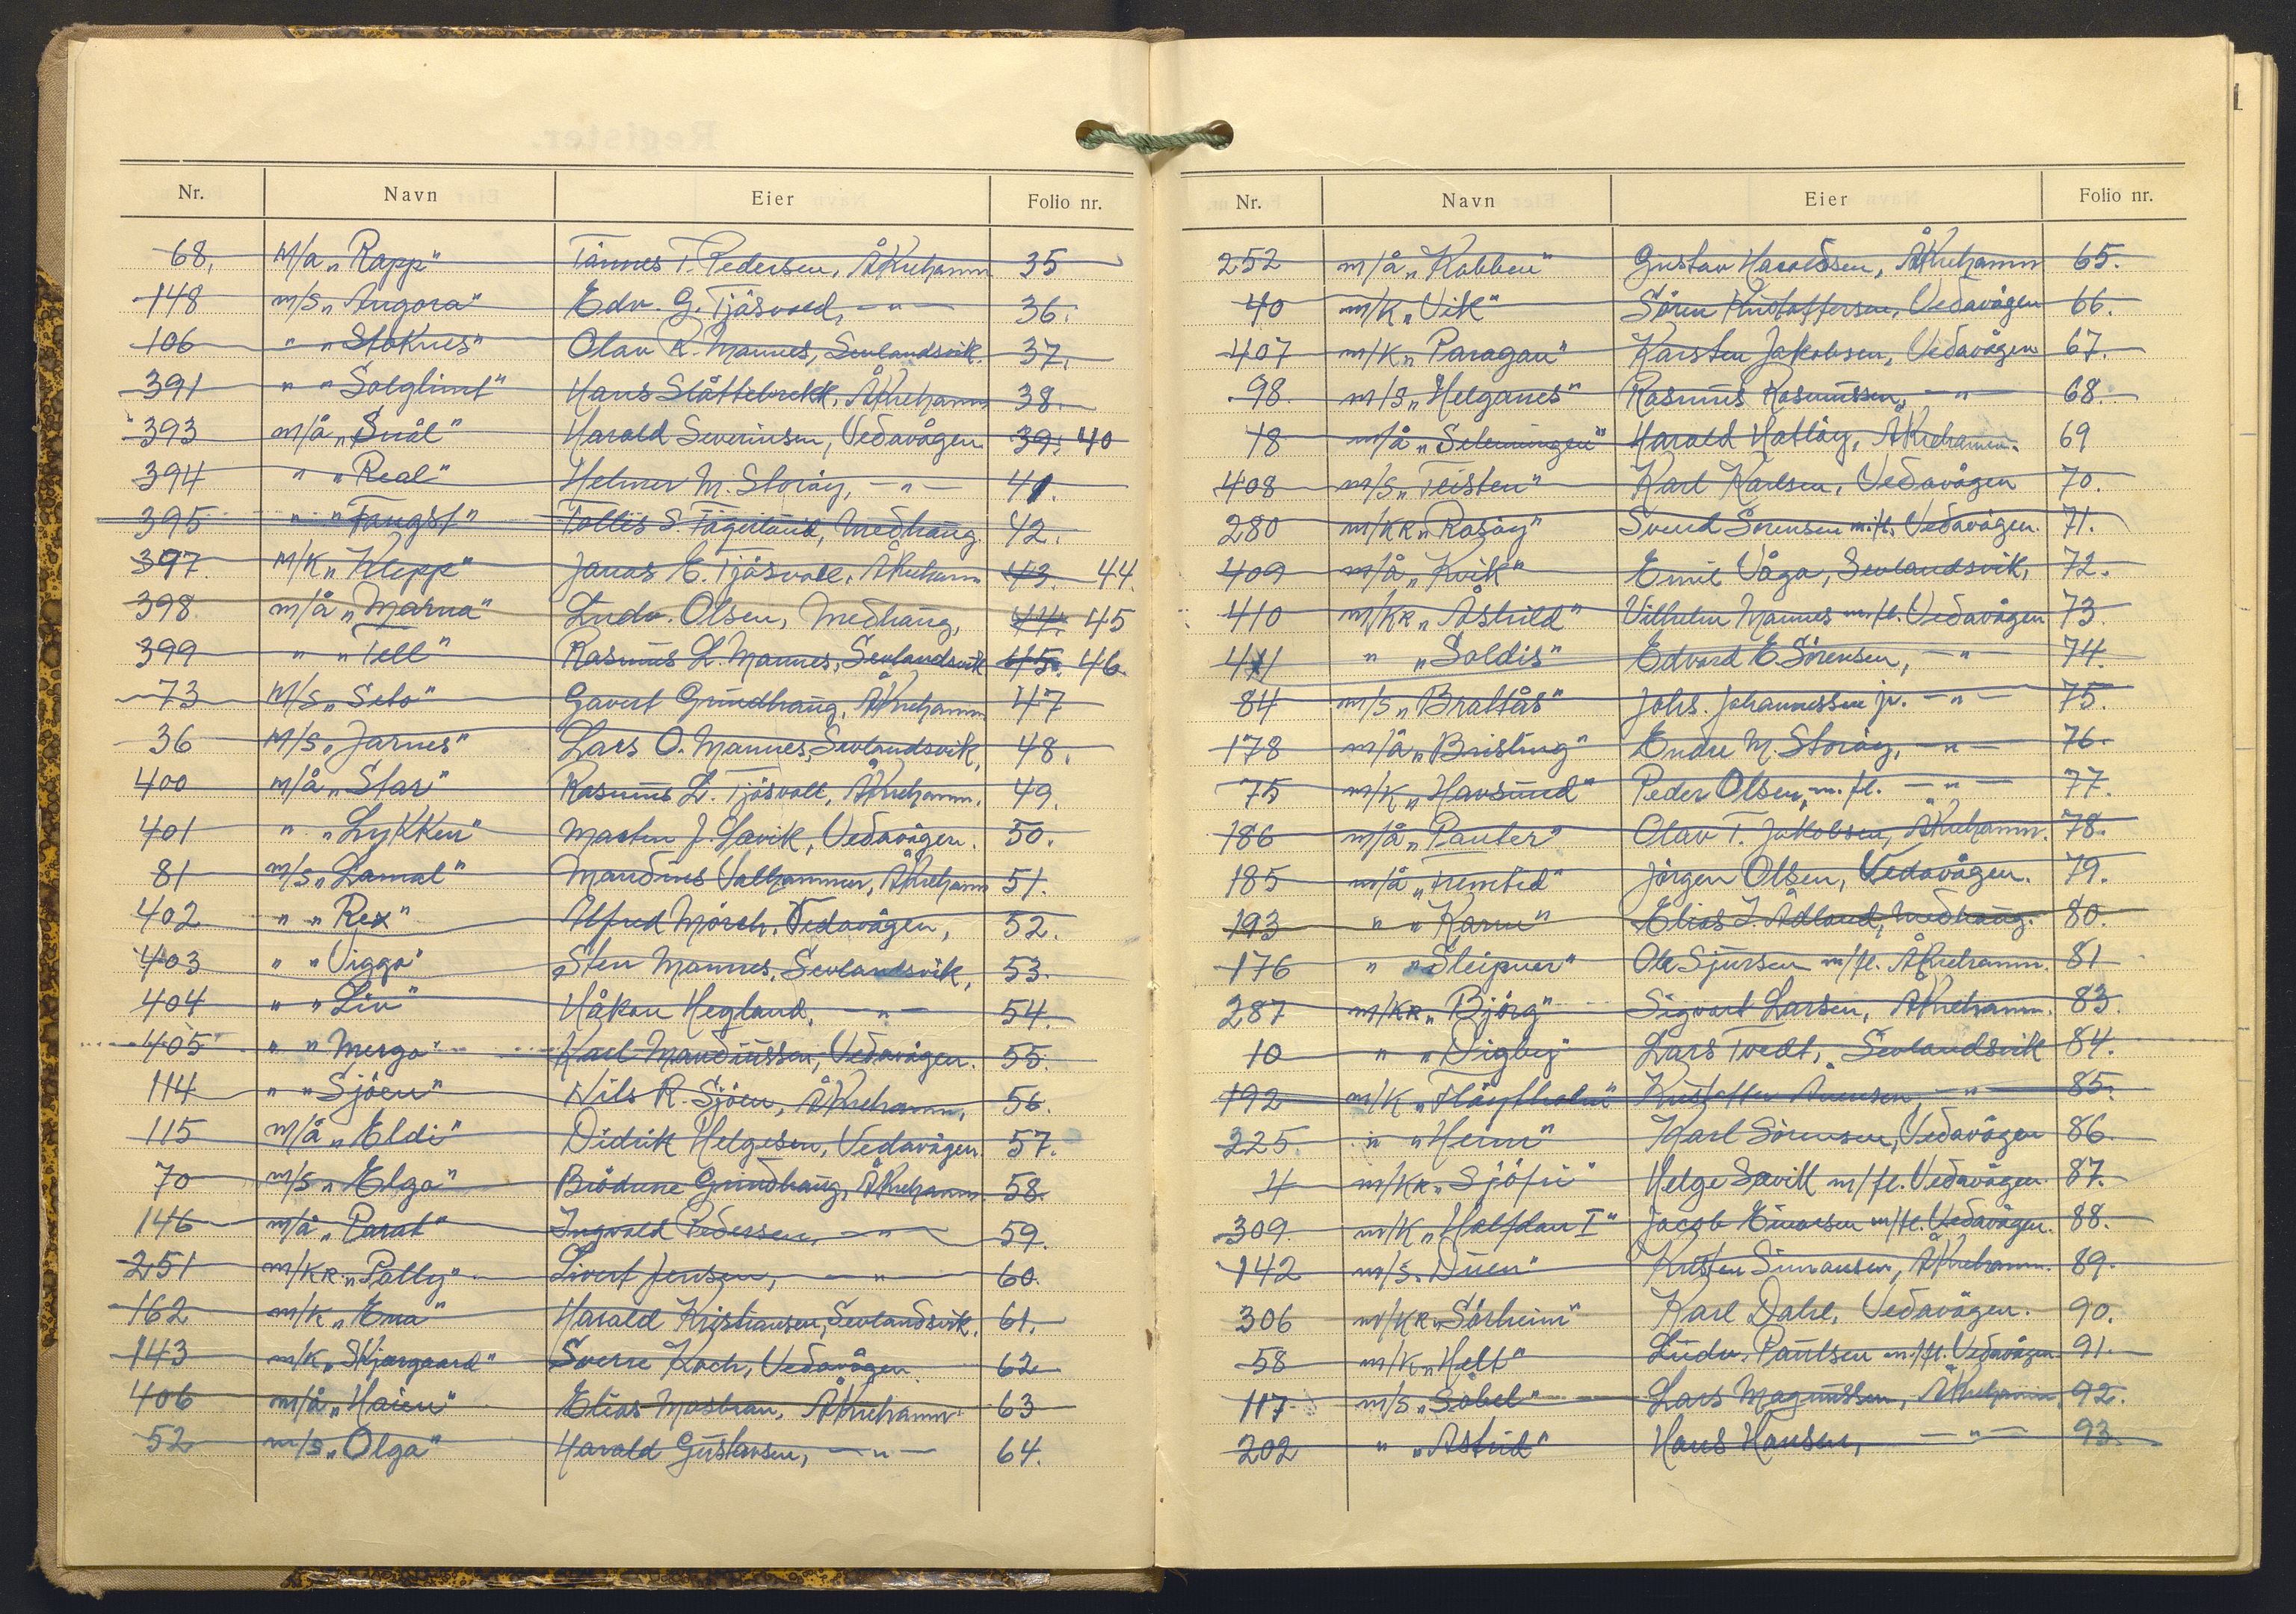 Nr. Navn Eier Folio nr.
68, M/a „Rapp" Tönnes T. Pedersen, Åkrehamn 35
148 m/s „Angora" Edv. G. Tjösvold, — " — 36.
106 " „Stoknes" Olav R. Mannes, Sevlandsvik. 37.
391 " „Solglimt" Hans Slåttebrekk, Åkrehamn 38.
393 m/å „Snål" Harald Severinsen, Vedavågen 39. 40
394 " „Real" Helmer M. Storöy, — " — 41.
395 " „Fangst" Tollis S. Fagerland, Medhaug. 42.
397. M/K „Klepp" Jonas E. Tjösvoll, Åkrehamn 43. 44.
398 m/å „Marna" Ludv. Olsen, Medhaug, 44. 45
399 " „Tell" Rasmus L. Mannes, Sevlandsvik 45. 46.
73 M/s „Seto" Gavert Grindhaug, Åkrehamn 47
36 M/s „Jarnes" Lars O. Mannes, Sevlandsvik, 48.
400 m/å „Star" Rasmus L. Tjösvoll, Åkrehamn. 49.
401 " „Lykken" Morten J. Sævik, Vedavågen. 50.
81 m/s „Lamal" Maudius Valhammer, Åkrehamn 51.
402 " „Rex" Alfred Mörch, Vedavågen, 52.
403 " „Viggo" Sten Mannes, Sevlandsvik, 53.
404 " „Liv" Håkon Hegland, — " — 54.
405 " „Mergo" Karl Maudiussen, Vedavågen. 55.
114 " „Sjöen" Nils R. Sjöen, Åkrehamn, 56.
115 m/å „Eldi" Didrik Helgesen, Vedavågen. 57.
70 m/s „Elgo" Brödrene Grindhaug, Åkrehamn. 58.
146 m/å „Parat" Ingvald Pedersen, — " — 59.
251 m/kr „Polly" Sivert Jensen, — " — 60.
162 m/k „Ena" Harald Kristiansen, Sevlandsvik. 61.
143 m/k „Skjærgaard" Sverre Koch, Vedavågen 62
406 m/å „Haien" Elias Mosbron, Åkrehamn 63
52 m/s „Olga" Harald Gustavsen, — " — 64.
Nr. Navn Eier Folio nr.
252 m/å „Kobben" Gustav Haroldsen, Åkrehamn 65.
40 m/k „Vik" Sören Kristoffersen, Vedavågen 66.
407 m/k „Paragon" Karsten Jakobsen, Vedavågen 67.
98. m/s „Helganes" Rasmus Rasmussen, — " — 68.
18 m/å „Selemingen" Harald Hatlöy, Åkrehamn. 69
408 m/s „Teisten" Karl Karlsen, Vedavågen 70.
280 m/kr „Rasöy" Svend Sörensen m.fl. Vedavågen. 71.
409 m/å „Kvik" Emil Våga, Sevlandsvik, 72.
410 m/kr „Åshild" Vilhelm Mannes m.fl. Vedavågen 73.
411 " „Soldis" Edvard E. Sörensen, — " — 74.
84 m/s „Brattås" Johs. Johannessen jr. — " — 75.
178 m/å „Brisling" Endre M. Storöy, — " — 76.
75 m/k „Havsund" Peder Olsen, m. fl. — " — 77.
186 m/å „Panter" Olav T. Jakobsen, Åkrehamn. 78.
185 m/å „Fremtid" Jörgen Olsen, Vedavågen. 79.
193 " „Karm" Elias J. Ådland, Medhaug. 80.
176 " „Sleipner" Ole Sjursen m/fl. Åkrehamn. 81
287 m/kr „Björg" Sigvart Larsen, Åkrehamn. 83.
10 " „Digby" Lars Tvedt, Sevlandsvik 84.
192 m/k „Flöytholm" Kristoffer Ånensen, — " — 85.
225. " „Heim" Karl Sörensen, Vedavågen 86.
4 m/kr „Sjöfri" Helge Sævik m/fl. Vedavågen. 87.
309. m/k „Halfdan I" Jacob Einarsen m/fl. Vedavågen. 88.
142 m/s „Duen" Kristen Simonsen, Åkrehamn. 89.
306 m/kr „Sörheim" Karl Dahl, Vedavågen. 90.
58 m/k „Helt" Ludv. Paulsen m/fl. Vedavågen 91.
117 m/s „Sobel" Lars Magnussen, Åkrehamn, 92.
202 " „Astrid" Hans Hansen, — " — 93.